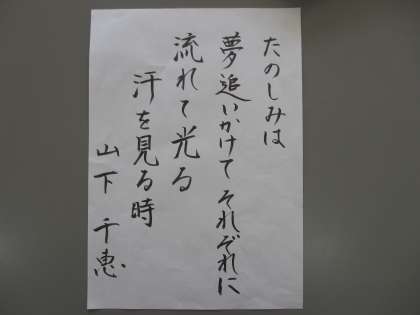 たのしみは
夢追いかけて それぞれに
流れて光る
汗を見る時
山下 千恵